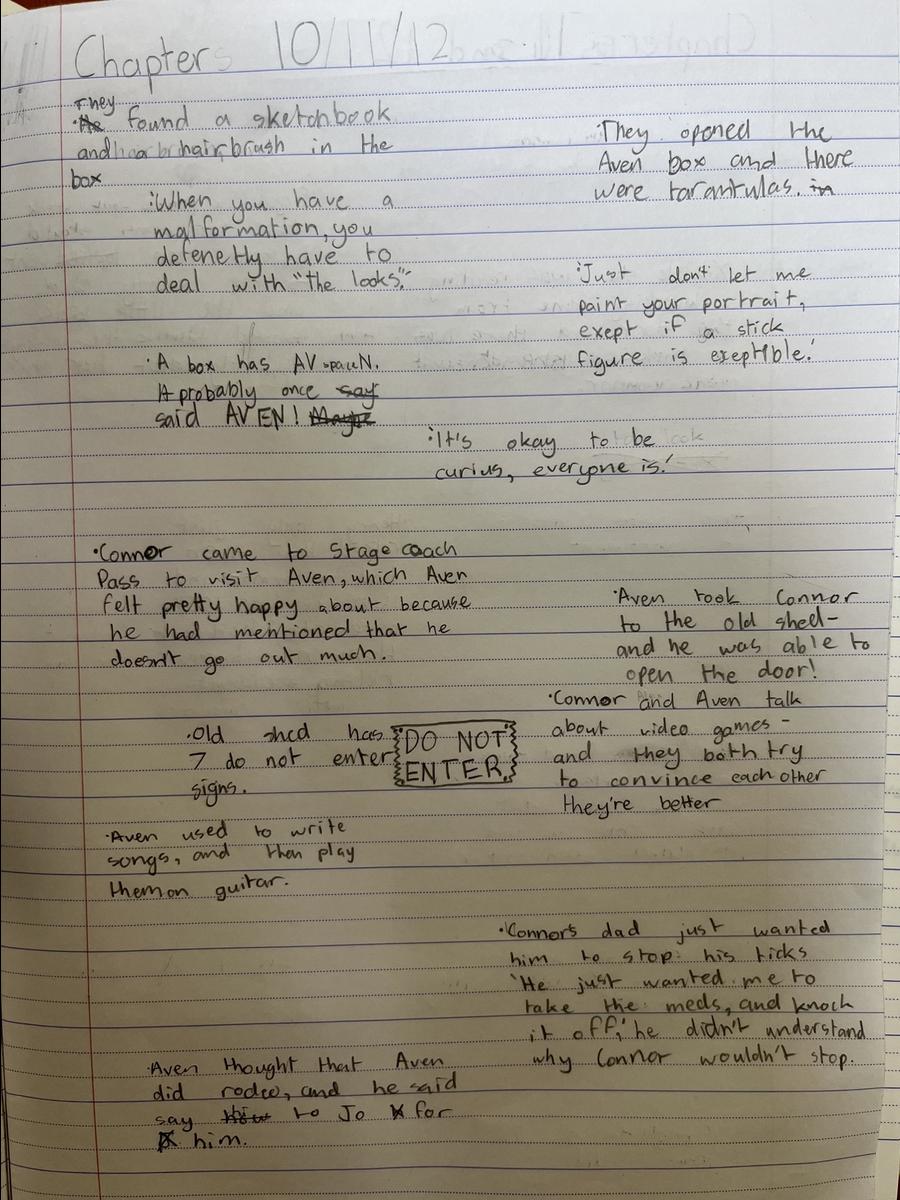 Chapters 10/11/12
They
• found a sketchbook
and hairbrush in the
box
They opened the
Aven box and there
were tarantulas. in
'When you have a
malformation, you
defenetly have to
deal with "the looks".'
'Just don't let me
paint your portrait,
exept if a stick
figure is exeptible.'
• A box has AV
It probably once say
said AVEN! Maybe
'It's okay to be
curius, everyone is.'
•Connor came to Stage coach
Pass to visit Aven, which Aven
felt pretty happy about because
he had mentioned that he
doesn't go out much.
'Aven took Connor
to the old shed-
and he was able to
open the door!
•Connor and Aven talk
about video games -
and they both try
to convince each other
they're better
•Old shed has
7 do not enter
signs.
DO NOT
ENTER
•Aven used to write
songs, and then play
them on guitar.
•Connor's dad just wanted
him to stop his ticks
'He just wanted me to
take the meds, and knock
it off,' he didn't understand
why Connor wouldn't stop.
•Aven thought that Aven
did rodeo, and he said
say to Jo for
him.